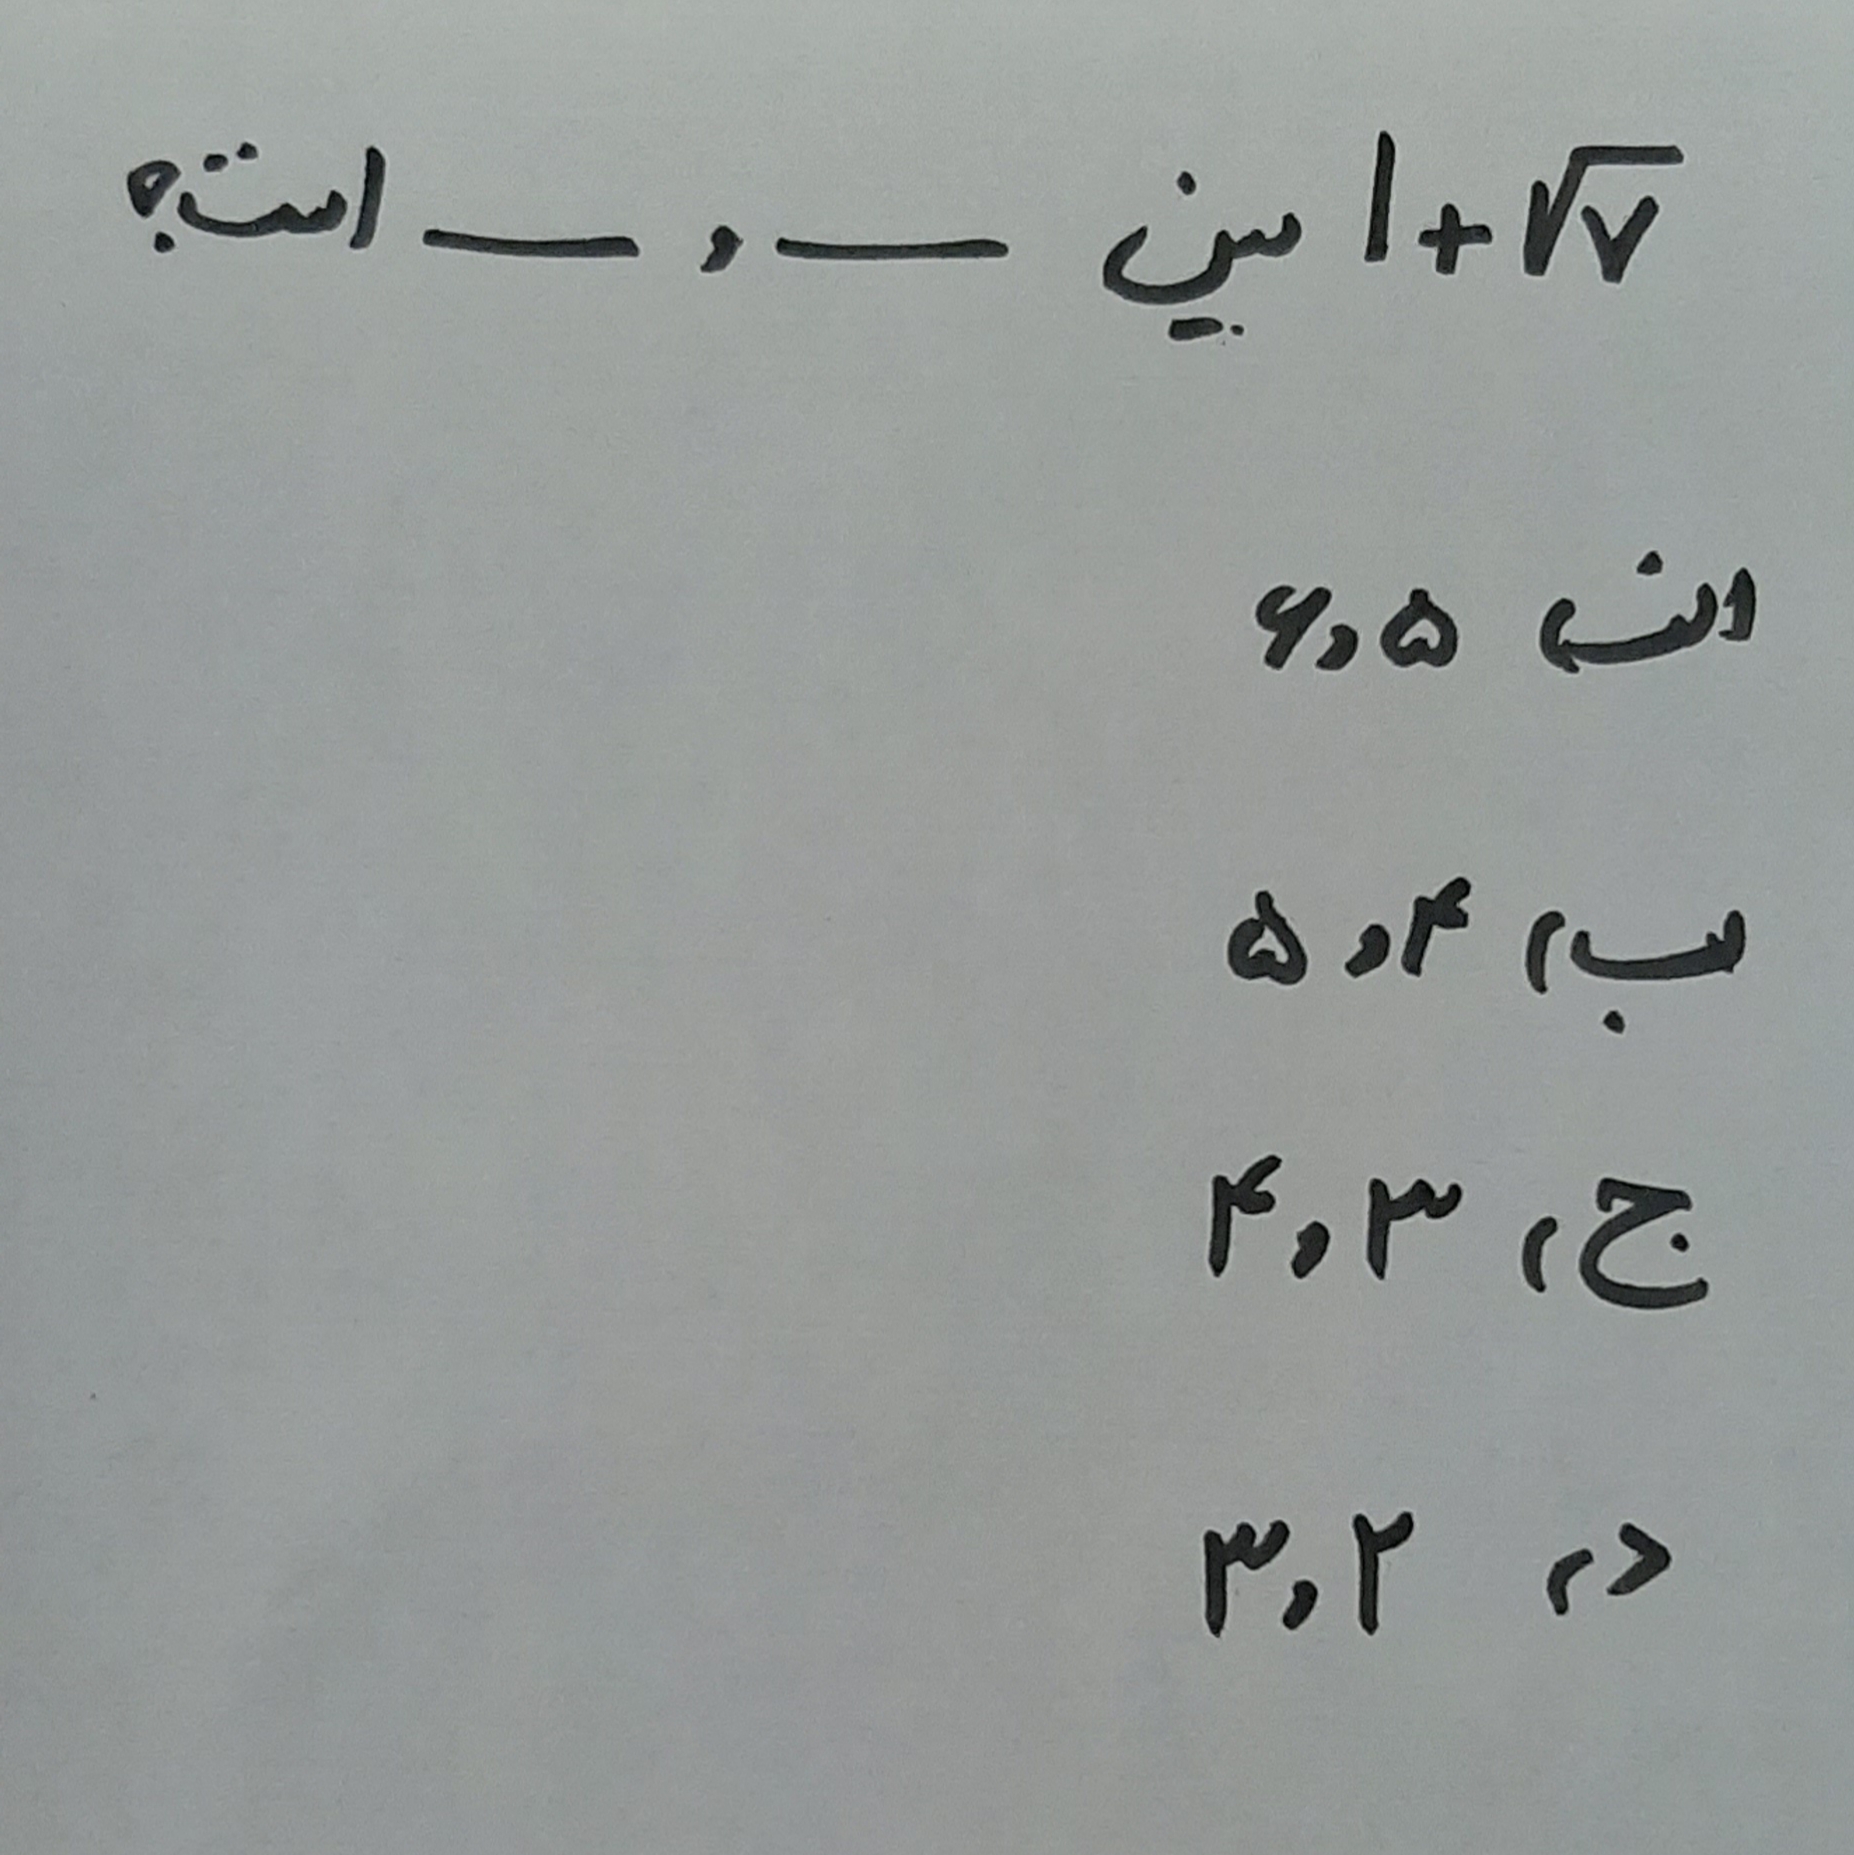 ۱+√۷ بین ___ و ___ است؟
الف، ۵ و ۶
ب، ۴ و ۵
ج، ۳ و ۴
د، ۲ و ۳